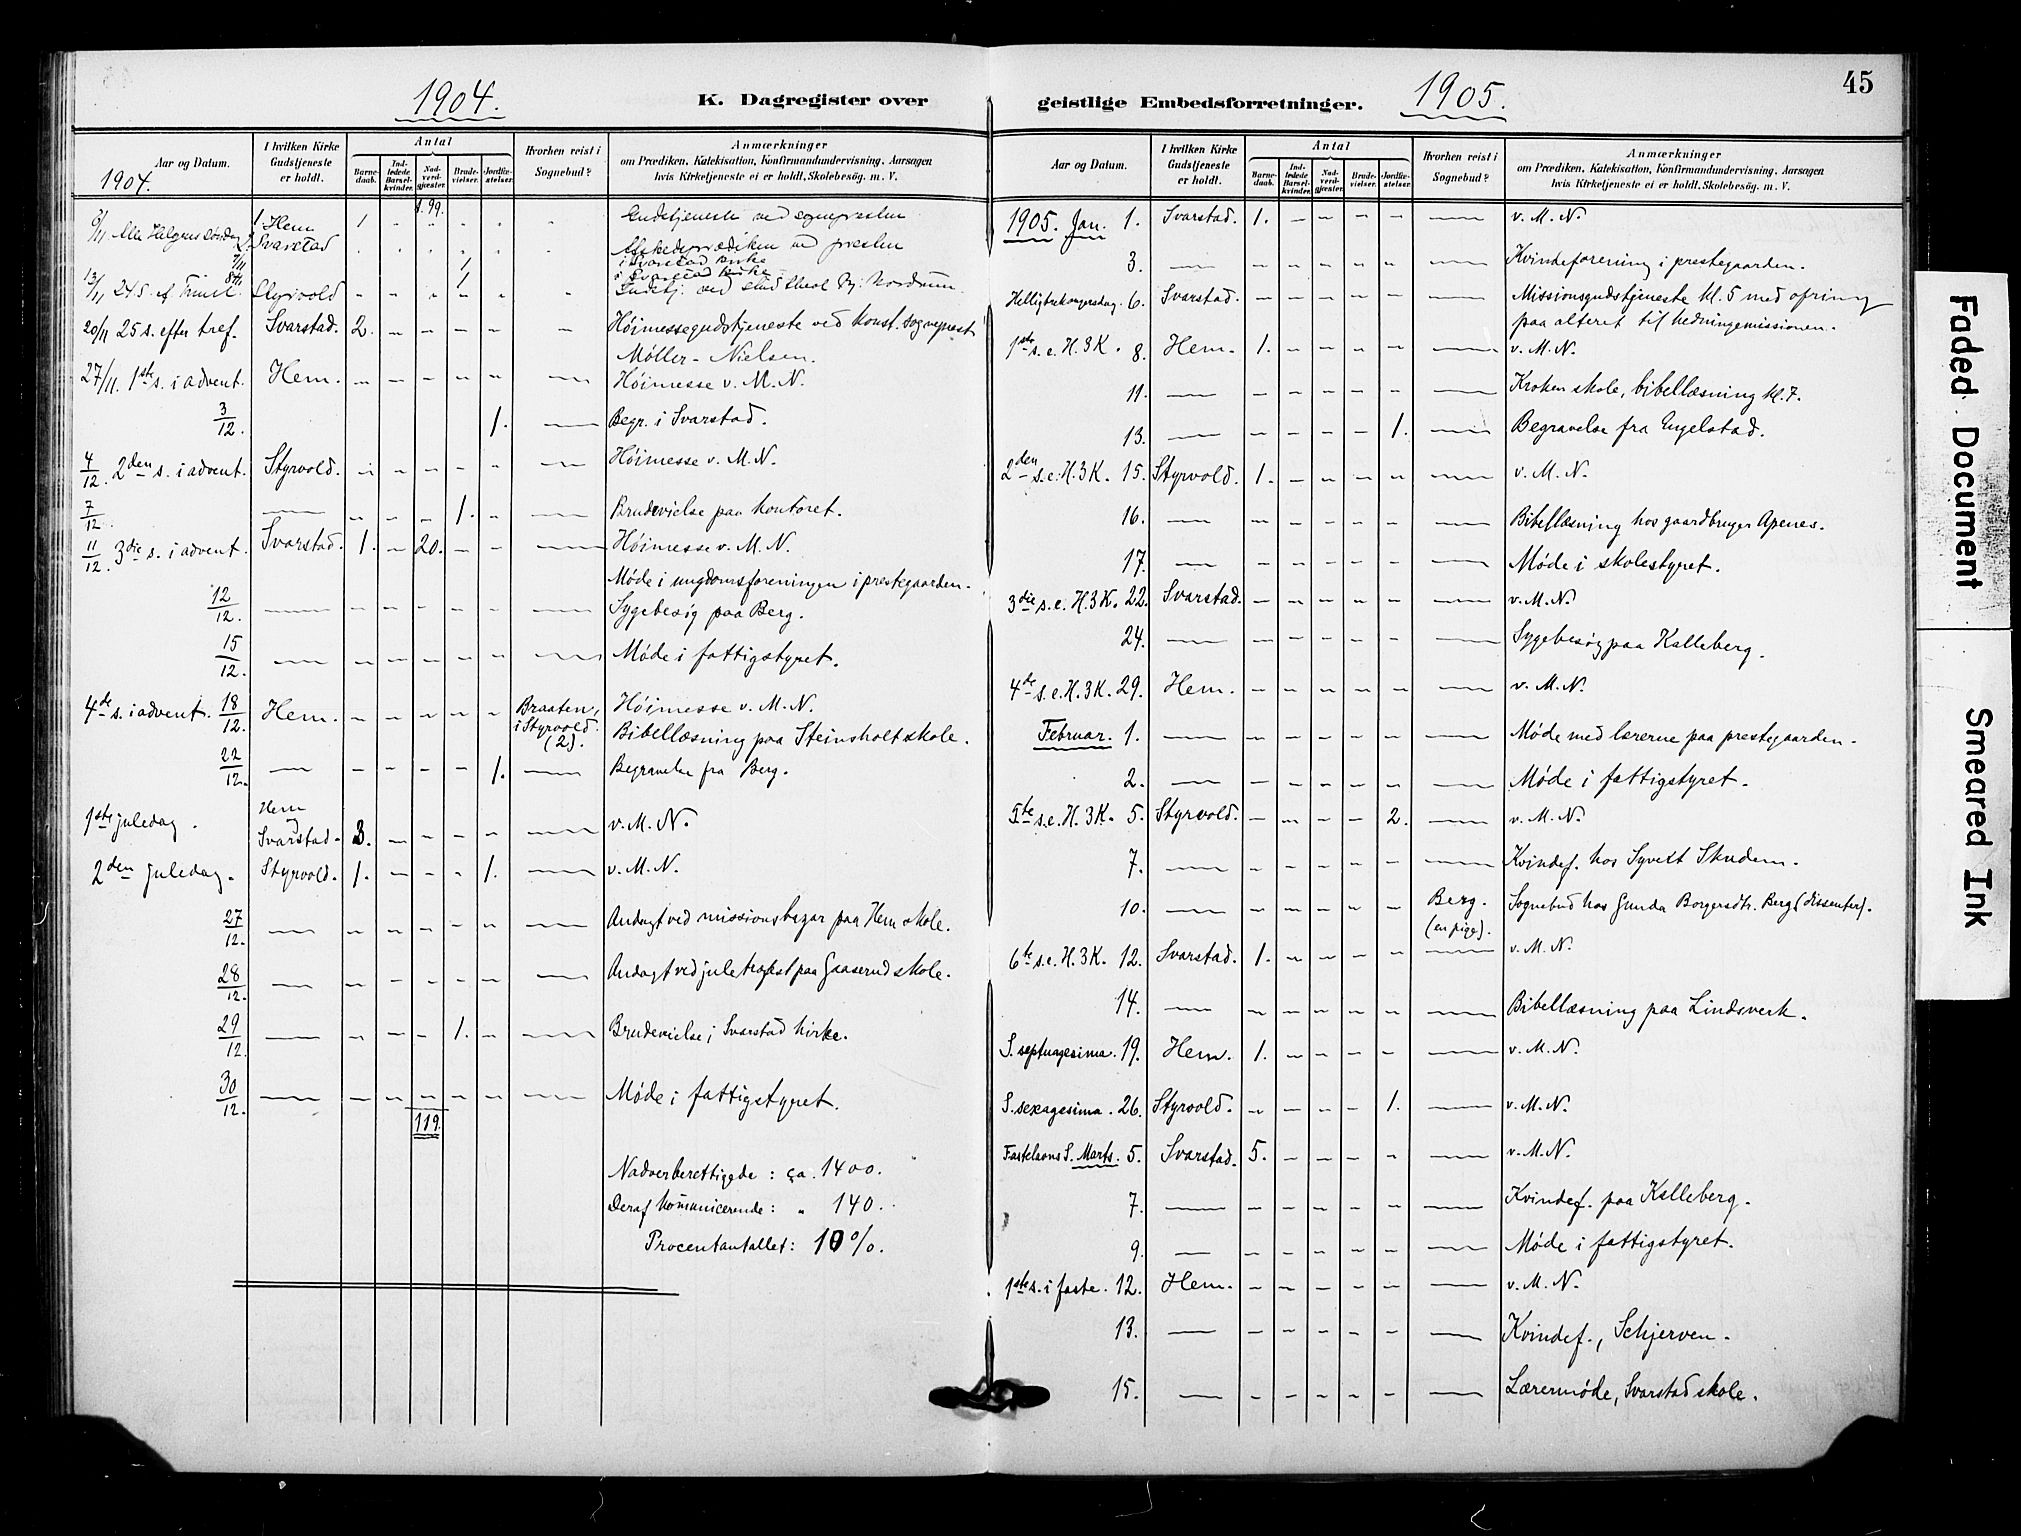 1904.
K. Dagregister over
Aar og Datum.
I hvilken Kirke Gudstjeneste er holdt.
Antal
Barnedaab.
Indledede Barselkvinder.
Nadverdgjæster.
Brudevielser.
Jordfæstelser.
Hvorhen reist i Sognebud?
Anmærkninger
om Prædiken, Katekisation, Konfirmandundervisning. Aarsagen
hvis Kirketjeneste ei er holdt. Skolebesøg. m. V.
1904.
6/11 Alle Helgens Søndag 1. Hem 1 " 99. " " " Gudstjeneste ved sognepresten
2. Svarstad " " " " " præsten
7/11 1 i Svarstad kirke
8/11 1 i Svarstad kirke
13/11 24 S. ef Trinit. Styrvold - - " " " Gudstj. ved Nordrum
20/11 25 s. efter tref. Svarstad. 2. - - - - - Höimessegudstjeneste ved konst. sogneprest
Møller-Nielsen.
27/11. 1ste s. i advent. Hem. - - - - - — Höimesse v. M. N.
3/12. 1. — Begr. i Svarstad.
4/12. 2den s. i advent. Styrvold. - - - - - — Höimesse v. M. N.
7/12. — - - - 1. - — Brudevielse paa kontoret.
11/12. 3die s. i advent. Svarstad. 1. - 20. - - — Höimesse v. M. N.
Møde i ungdomsforeningen i prestegaarden.
12/12. — - - - - - — Sygebesøg paa Berg.
15/12. — - - - - - — Møde i fattigstyret.
4de s. i advent. 18/12. Hem. - - - - - Braaten, Höimesse v. M. N.
i Styrvold. (2). Bibellæsning paa Steinsholt skole.
22/12. — - - - - 1. — Begravelse fra Berg.
1ste juledag. Hem og Svarstad. 3. - - - - — v. M. N.
2den juledag. Styrvold. 1. - - - 1. — v. M. N.
27/12. — - - - - - — Andagt ved missionsbazar paa Hem skole.
28/12. — - - - - - — Andagt ved juletræfest paa Gaaserud skole.
29/12. — - - - 1. - — Brudevielse i Svarstad kirke.
30/12. — - - - - - — Møde i fattigstyret.
119.
Nadverberettigede: ca. 1400.
Deraf kommunicerende: " 140.
Procentantallet: 10%.
45
geistlige Embedsforretninger.
1905.
Aar og Datum.
I hvilken Kirke Gudstjeneste er holdt.
Antal
Barnedaab.
Indledede Barselkvinder.
Nadverdgjæster.
Brudevielser.
Jordfæstelser.
Hvorhen reist i Sognebud?
Anmærkninger
om Prædiken, Katekisation, Konfirmandundervisning. Aarsagen
hvis Kirketjeneste ei er holdt. Skolebesøg. m. V.
1905. Jan. 1. Svarstad. 1. - - - - — v. M. N.
3. — Kvindeforening i prestegaarden.
Helligtrekongersdag. 6. Svarstad. - - - - - — Missionsgudstjeneste kl. 5 med ofring
paa alteret til hedningemissionen.
1ste s. e. H. 3 K. 8. Hem. 1. - - - - — v. M. N.
11. — - - - - — Kroken skole, bibellæsning kl. 7.
13. — - - - - 1. — Begravelse fra Engelstad.
2den s. e. H. 3 K. 15. Styrvold. 1. - - - - — v. M. N.
16. — - - - - - — Bibellæsning hos gaardbruger Apenes.
17. — - - - - - — Møde i skolestyret.
3die s. e. H. 3 K. 22. Svarstad. - - - - - — v. M. N.
24. — - - - - - — Sygebesøg paa Kalleberg.
4de s. e. H. 3 K. 29. Hem. - - - - - — v. M. N.
Februar. 1. — - - - - - — Møde med lærerne paa prestegaarden.
2. — - - - - - — Møde i fattigstyret.
5te s. e. H. 3 K. 5. Styrvold. - - - - 2. — v. M. N.
7. — - - - - - — Kvindef. hos Syvert Skudem.
10. — - - - - - Berg. (en pige). Sognebud hos Gunda Borgersdtr. Berg (dissenter).
6te s. e. H. 3 K. 12. Svarstad. 1. - - - - — v. M. N.
14. — - - - - - — Bibellæsning paa Lindsverk.
S. septuagesima. 19. Hem. 1. - - - - — v. M. N.
S. sexagesima. 26. Styrvold. - - - - 1. — v. M. N.
Fastelavns S. Marts. 5. Svarstad. 5. - - - - — v. M. N.
7. — - - - - - — Kvindef. paa Kalleberg.
9. — - - - - - — Møde i fattigstyret.
1ste s. i faste. 12. Hem. - - - - - — v. M. N.
13. — - - - - - — Kvindef., Schjerven.
15. — - - - - - — Lærermøde, Svarstad skole.
Faded Document
Smeared Ink